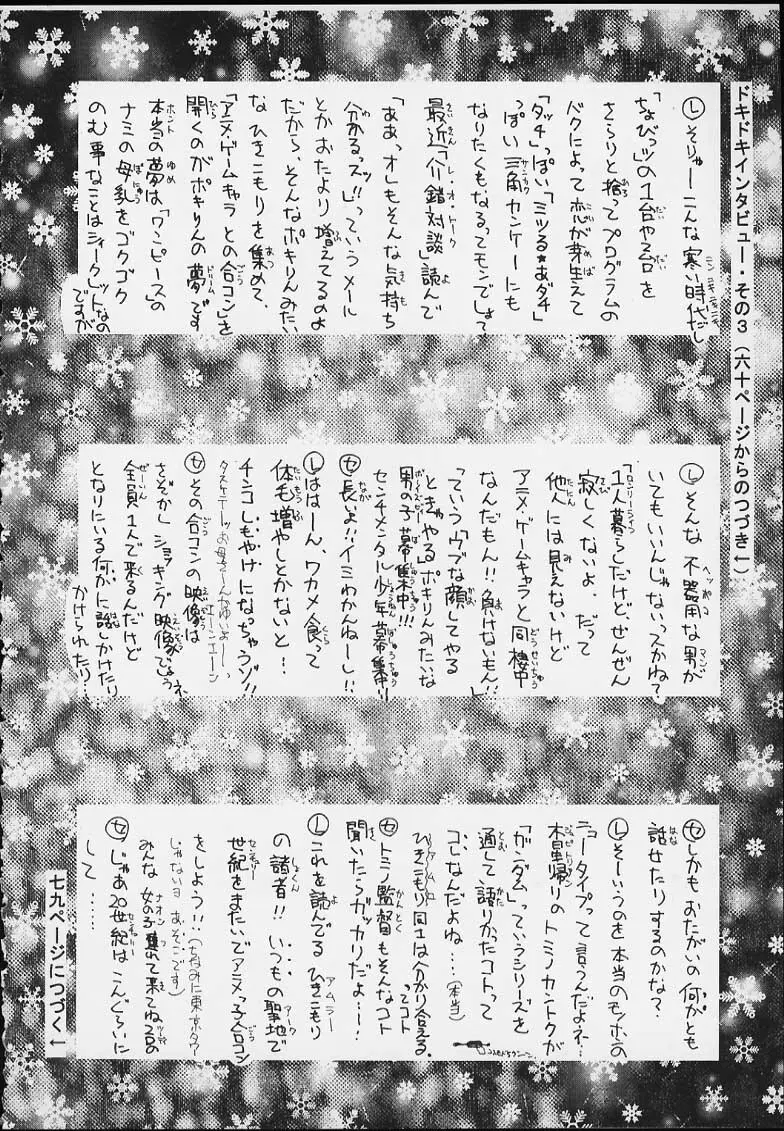 ドキドキインタビュー・その３（六十ページからのつづき←）
Ⓛそりゃーこんな寒い時代だし
「ちょびっツ」の1台や2台を
さらりと捨ってプログラムの
バグによって恋が芽生えて
「タッチ」っぽい「ミツる★あダチ」
っぽい三角カンケーにも
なりたくもなるってモンでしょ?
最近「介錯対談」読んで
「ああっオレもそんな気持ち
分かるっスッ!!」っていうメール
とかおたより増えてるのよ
だから、そんなポキりんみたい
なひきこもりを集めて、
「アニメ・ゲームキャラとの合コン」を
開くのがポキりんの夢です
本当の夢は「ワンピース」の
ナミの母乳をゴクゴク
のむ事なことはシィークレットなの
ですが
Ⓛそんな不器用な男が
いてもいいんじゃないってかね?
「1人暮らしだけど、ぜんぜん
寂しくないよ。だって
他人には見えないけど
アニメ・ゲームキャラと同棲中
なんだもん!!負けないもん!!」
っていうウブな顔してやる
ときゃやるポキりんみたいな
男の子募集中!!!
センチメンタル少年募集中!!
㋝長いよ!!イミわかんねーし!!
Ⓛははーん、ワカメ食って
体毛増やしとかないと!!
チンコしもやけになっちゃうゾ!!
㋝その合コンの映像は
さぞかしショッキング映像でしょうネ
全員1人で来るんだけど
となりにいる何かに話しかけたり
かけられたり…
㋝しかもおたがいの何かとも
話せたりするのかな?
Ⓛそーいうのを本当のモノホンの
ニュータイプって言うんだよネ…
木星帰りのトミノカントクが
「ガンダム」っていうシリーズを
通して語りかったコトって
コレなんだよね…(本当)
ひきこもり同士は分かり合える。
ってコト
㋝トミノ監督もそんなコト
聞いたらガッカリだよ…!
Ⓛこれを読んでるひきこもり
の諸君!!いつもの聖地で
世紀をまたいでアニメっ子合コン
をしよう!!(ちなみに東京タワー
じゃないヨあそこです)
みんな女の子連れて来てね2台の
㋝じゃあ20世紀はこんぐらいに
して……
七九ページにつづく←